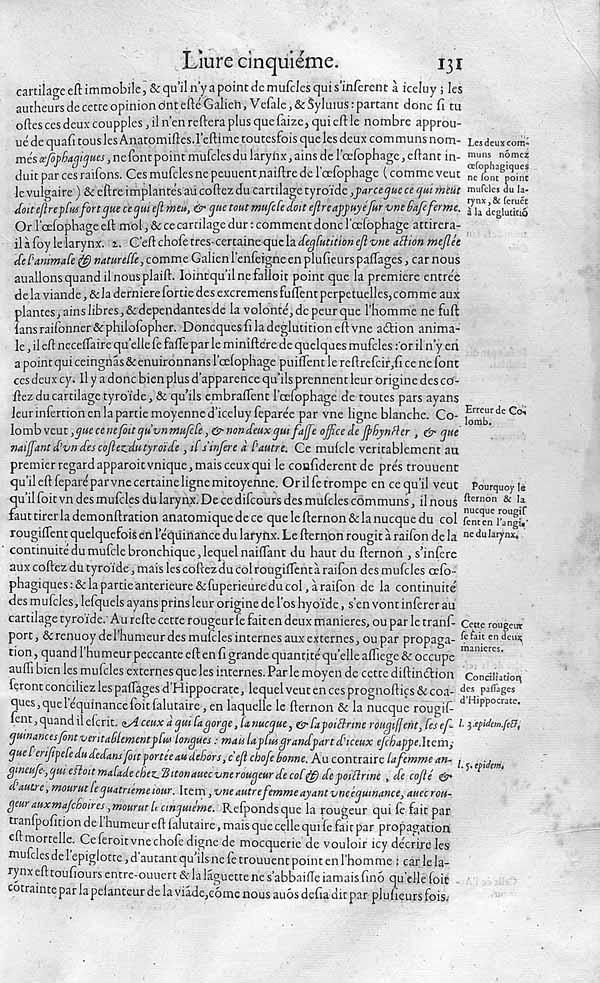 Liure cinquiéme. 131
cartilage eſt immobile, & qu'il n'y a point de muſcles qui s'inſerent à iceluy; les
autheurs de cette opinion ont eſté Galien, Veſale, & Syluius: partant donc ſi tu
oſtes ces deux coupples, il n'en reſtera plus que ſaize, qui eſt le nombre approu-
ué de quaſi tous les Anatomiſtes. I'eſtime toutesfois que les deux communs nom-
més œſophagiques, ne ſont point muſcles du larynx, ains de l'œſophage, eſtant in-
duit par ces raiſons. Ces muſcles ne peuuent naiſtre de l'œſophage (comme veut
le vulgaire) & eſtre implantés au coſtez du cartilage tyroïde, parce que ce qui meut
doit eſtre plus fort que ce qui eſt meu, & que tout muſcle doit eſtre appuyé ſur vne baſe ferme.
Or l'œſophage eſt mol, & ce cartilage dur: comment donc l'œſophage attirera-
il à ſoy le larynx. 2. C'eſt choſe tres-certaine que la deglutition eſt vne action meſlée
de l'animale & naturelle, comme Galien l'enſeigne en pluſieurs paſſages, car nous
auallons quand il nous plaiſt. Ioinct qu'il ne falloit point que la premiere entrée
de la viande, & la derniere ſortie des excremens fuſſent perpetuelles, comme aux
plantes, ains libres, & dependantes de la volonté, de peur que l'homme ne fuſt
ſans raiſonner & philoſopher. Doncques ſi la deglutition eſt vne action anima-
le, il eſt neceſſaire qu'elle ſe faſſe par le miniſtére de quelques muſcles: or il n'y en
a point qui ceingnãs & enuironnans l'œſophage puiſſent le reſtreſcir, ſi ce ne ſont
ces deux cy. Il y a donc bien plus d'apparence qu'ils prennent leur origine des co-
ſtez du cartilage tyroïde, & qu'ils embraſſent l'œſophage de toutes pars ayans
leur inſertion en la partie moyenne d'iceluy ſeparée par vne ligne blanche. Co-
lomb veut, que ce ne ſoit qu'vn muſcle, & non deux qui faſſe office de ſphyncter, & que
naiſſant d'vn des coſtez du tyroïde, il s'inſere à l'autre. Ce muſcle veritablement au
premier regard apparoit vnique, mais ceux qui le conſiderent de prés trouuent
qu'il eſt ſeparé par vne certaine ligne mitoyenne. Or il ſe trompe en ce qu'il veut
qu'il ſoit vn des muſcles du larynx. De ce diſcours des muſcles communs, il nous
faut tirer la demonſtration anatomique de ce que le ſternon & la nucque du col
rougiſſent quelquefois en l'équinance du larynx. Le ſternon rougit à raiſon de la
continuité du muſcle bronchique, lequel naiſſant du haut du ſternon, s'inſere
aux coſtez du tyroïde, mais les coſtez du col rougiſſent à raiſon des muſcles œſo-
phagiques: & la partie anterieure & ſuperieure du col, à raiſon de la continuité
des muſcles, leſquels ayans prins leur origine de l'os hyoïde, s'en vont inſerer au
cartilage tyroïde. Au reſte cette rougeur ſe fait en deux manieres, ou par le tranſ-
port, & renuoy de l'humeur des muſcles internes aux externes, ou par propaga-
tion, quand l'humeur peccante eſt en ſi grande quantité qu'elle aſſiege & occupe
auſſi bien les muſcles externes que les internes. Par le moyen de cette diſtinction
ſeront conciliez les paſſages d'Hippocrate, lequel veut en ces prognoſtics & coa-
ques, que l'équinance ſoit ſalutaire, en laquelle le ſternon & la nucque rougiſ-
ſent, quand il eſcrit. A ceux à qui la gorge, la nucque, & la poictrine rougiſſent, les eſ-
quinances ſont veritablement plus longues: mais la plus grand part d'iceux eſchappe. Item,
que l'eriſipele du dedans ſoit portée au dehors, c'eſt choſe bonne. Au contraire la femme an-
gineuſe, qui eſtoit malade chez Biton auec vne rougeur de col & de poictrine, de coſté &
d'autre, mourut le quatriéme iour. Item, vne autre femme ayant vne équinance, auec rou-
geur aux maſchoires, mourut le cinquiéme. Reſponds que la rougeur qui ſe fait par
tranſpoſition de l'humeur eſt ſalutaire, mais que celle qui ſe fait par propagation
eſt mortelle. Ce ſeroit vne choſe digne de mocquerie de vouloir icy décrire les
muſcles de l'epiglotte, d'autant qu'ils ne ſe trouuent point en l'homme: car le la-
rynx eſt touſiours entre-ouuert & la lãguette ne s'abbaiſſe iamais ſinõ qu'elle ſoit
cõtrainte par la peſanteur de la viãde, cõme nous auõs deſia dit par pluſieurs fois.
Les deux com-
muns nõmez
œſophagiques
ne ſont point
muſcles du la-
rynx, & ſeruẽt
à la deglutitiõ
Erreur de Co-
lomb.
Pourquoy le
ſternon & la
nucque rougiſ-
ſent en l'angi-
ne du larynx.
Cette rougeur
ſe fait en deux
manieres.
Conciliation
des paſſages
d'Hippocrate.
l. 3. epidem. ſect.
l. 5. epidem.